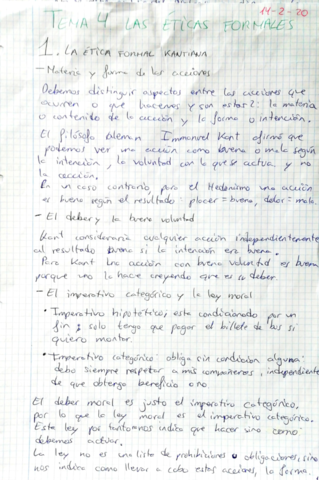 11-2-20
TEMA 4. LAS ÉTICAS FORMALES
1. LA ÉTICA FORMAL KANTIANA
- Materia y forma de las acciones
Debemos distinguir aspectos entre las acciones que
ocurren o que hacemos y son estos 2: la materia
o contenido de la acción y la forma o intención.
El filósofo aleman Immanuel Kant afirmó que
podemos ver una acción como buena o mala según
la intención, la voluntad con la que se actua y no
la acción.
En un caso contrario, para el Hedonismo una acción
es buena según el resultado: placer = bueno, dolor = malo.
- El deber y la buena voluntad
Kant consideraria cualquier acción independientemente
al resultado buena si la intención era buena.
Para Kant una acción con buena voluntad es buena
porque uno la hace creyendo que es su deber.
- El imperativo categórico y la ley moral
• Imperativo hipotético: esta condicionado por un
fin; solo tengo que pagar el billete de bus si
quiero montar.
• Imperativo categórico: obliga sin condición alguna:
debo siempre respetar a mis compañeros, independiente
de que obtenga beneficio o no.
El deber moral es justo el imperativo categórico,
por lo que la ley moral es el imperativo categórico.
Esta ley por tanto nos indica que hacer sino como
debemos actuar.
La ley no es una lista de prohibiciones u obligaciones, sino
nos indica como llevar a cabo estas acciones, la forma.